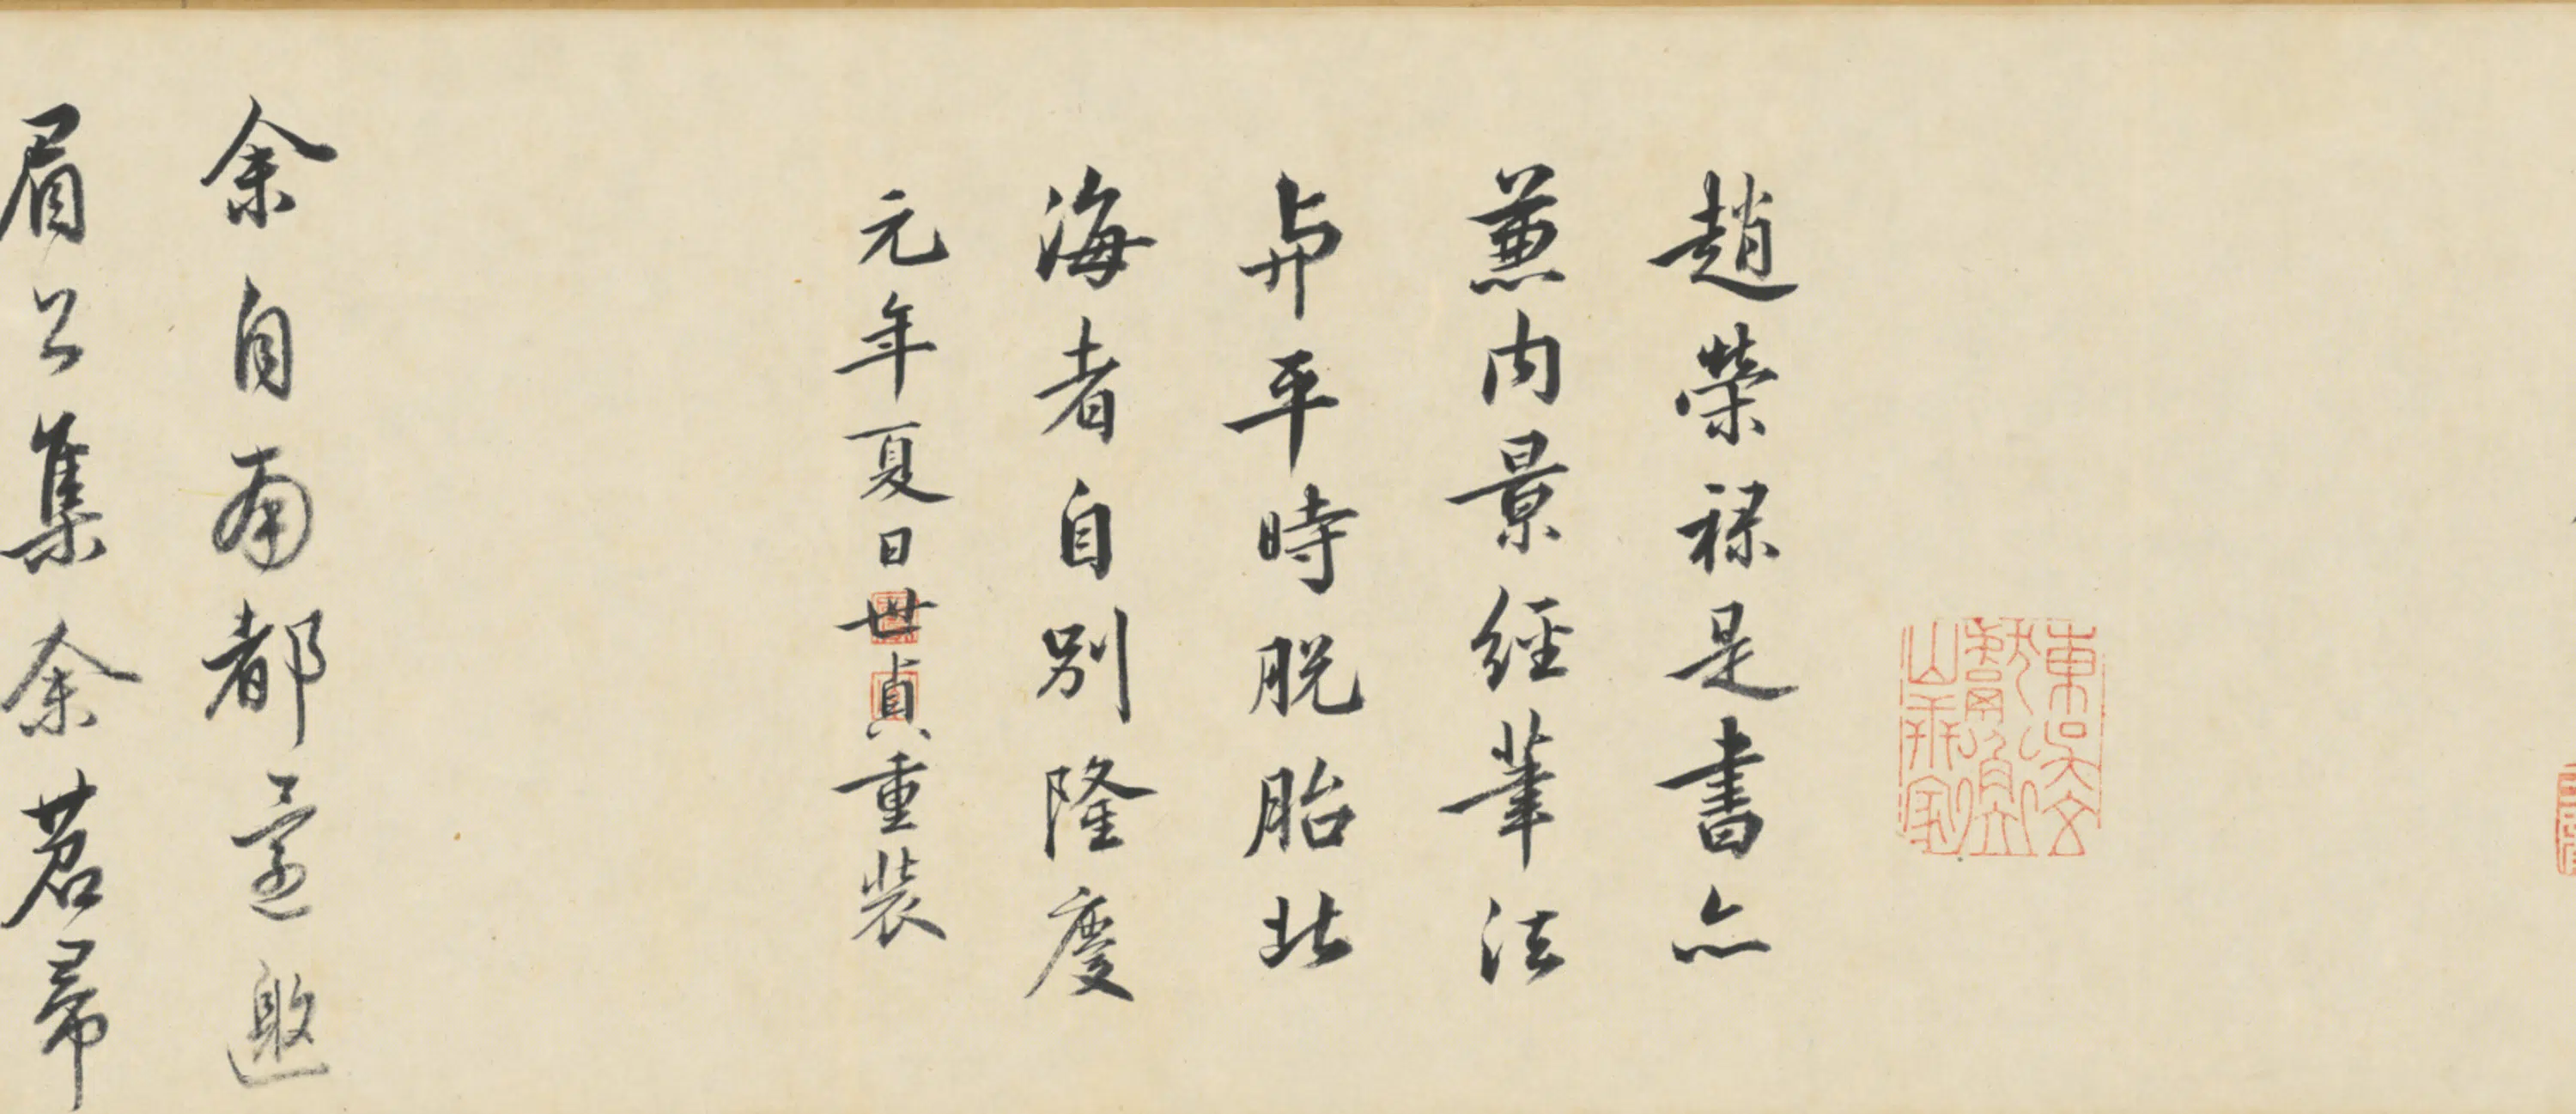 東吳文獻衡山世家
趙榮祿是書亦
兼內景經筆法
與平時脫胎北
海者自別隆慶
元年夏日世貞重裝
余自南都還邀
眉公集余苕帚